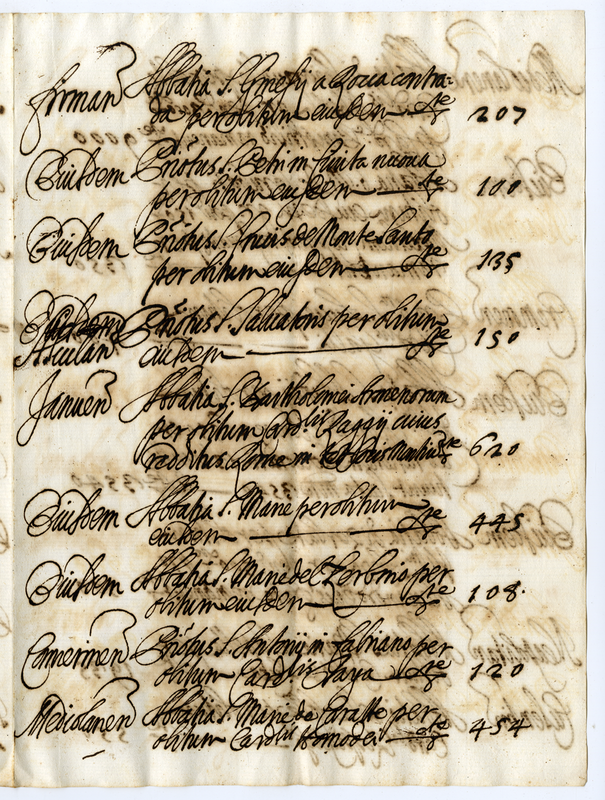 Firman Abbatia S. Gmesij a Rocca contra=
da per obitum eiusdem 207
Eiusdem Prioratus S. Petri in Civita nuova
per obitum eiusdem 100
Eiusdem Prioratus S. Crucis de Monte Santo
per obitum eiusdem 135
Prioratus S. Salvatoris per obitum
Asculan eiusdem 150
Januen Abbatia S. Bartholomei Armenorum
per obitum Card.lis Raggij cuius
redditus 620
Eiusdem Abbatia S. Marie per obitum
eiusdem 445
Eiusdem Abbatia S. Marie del Zerbino per
obitum eiusdem 108.
Camerinen Prioratus S. Antonij in Fabriano per
obitum Card.lis 120
Mediolanen Abbatia S. Marie de per
obitum Card.lis Homodei 454